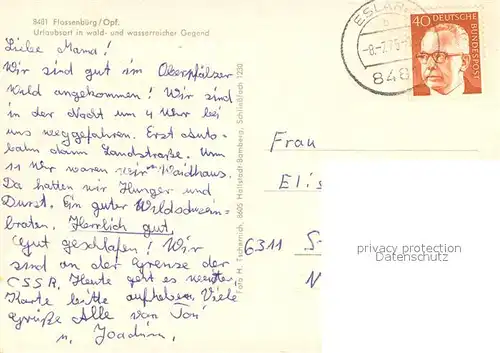 8481 Flossenbürg/Opf.
Urlaubsort in wald- und wasserreicher Gegend
Liebe Mama!
Wir sind gut im Oberpfälzer
Wald angekommen! Wir sind
in der Nacht um 4 Uhr bei
uns weggefahren. Erst Auto-
bahn dann Landstraße. Um
11 Uhr waren wir in Waidhaus.
Da hatten wir Hunger und
Durst. Ein guter Wildschwein-
braten. Herrlich gut.
Gut geschlafen! Wir
sind an der Grenze der
CSSR. Heute geht es weiter
Karte bitte aufheben. Viele
Grüße Alle von Toni
u. Joachim.
Foto H. Tschernich, 8605 Hallstadt-Bamberg, Schließfach 1230
ESLARN
-8.-7.75-
848
40 DEUTSCHE
BUNDESPOST
Frau
Elis
6311 S
N
privacy protection
Datenschutz